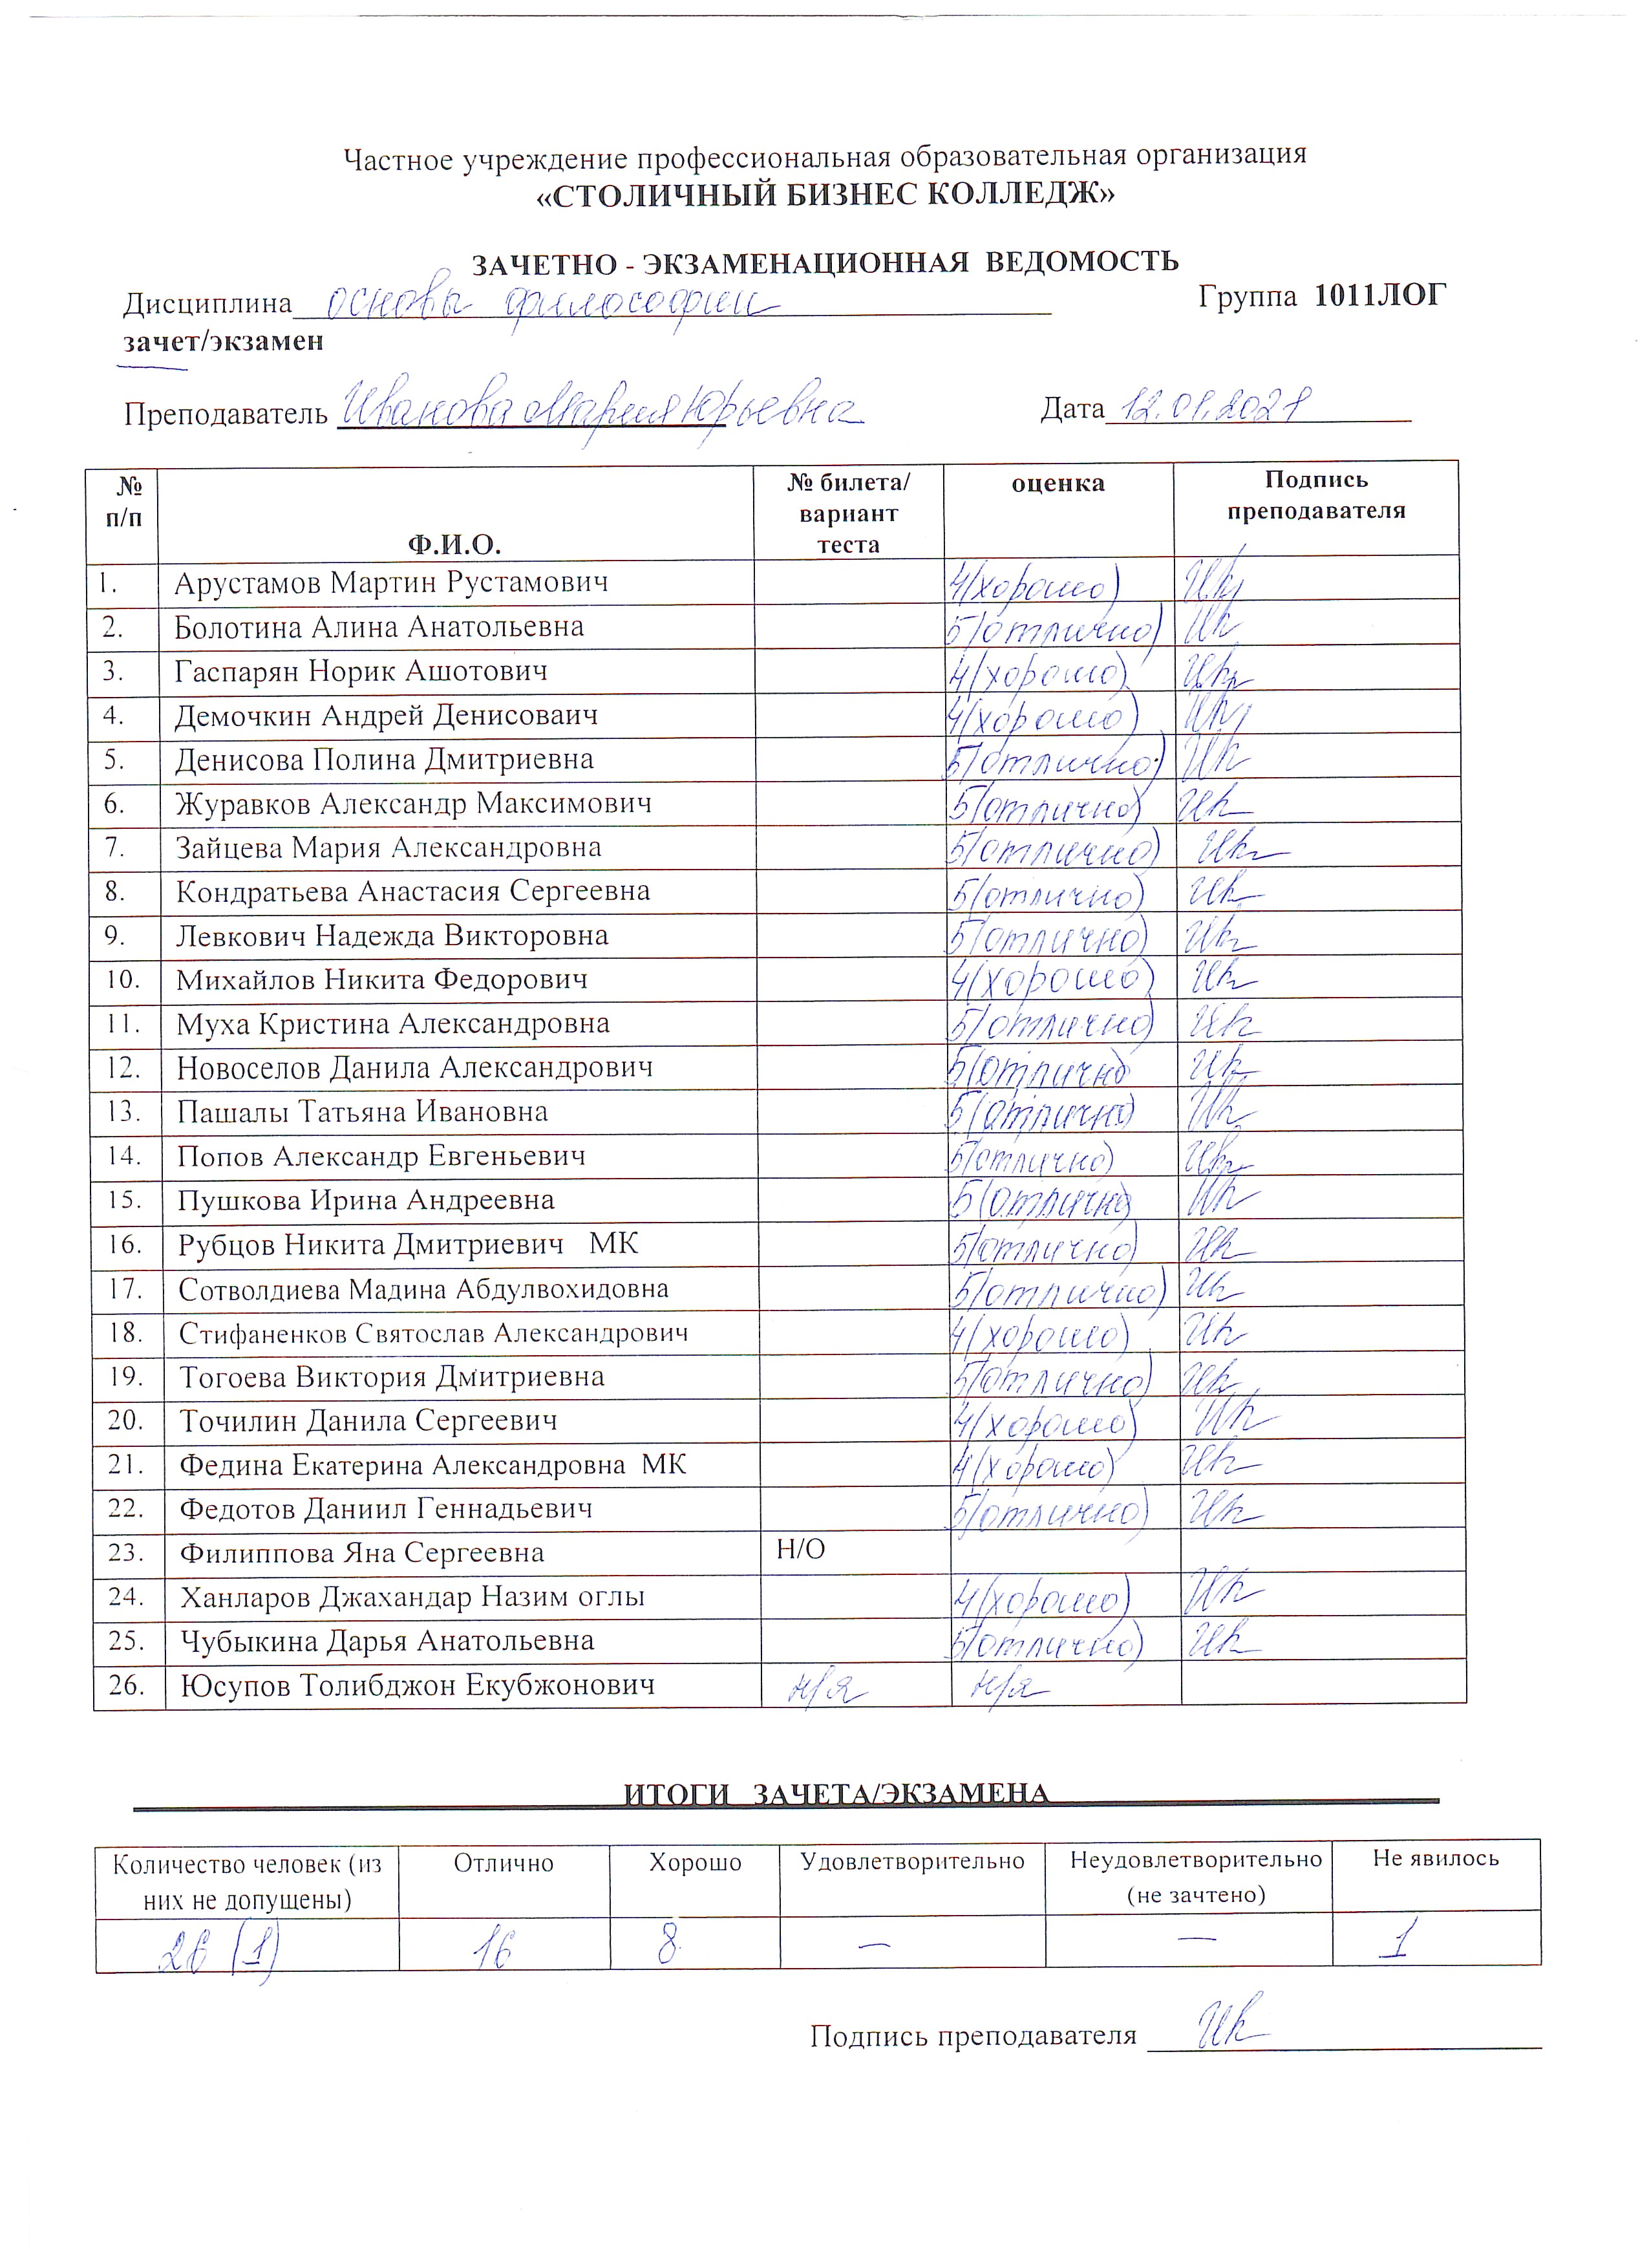 Частное учреждение профессиональная образовательная организация
«СТОЛИЧНЫЙ БИЗНЕС КОЛЛЕДЖ»
ЗАЧЕТНО - ЭКЗАМЕНАЦИОННАЯ ВЕДОМОСТЬ
Дисциплина основы философии Группа 1011ЛОГ
зачет/экзамен
Преподаватель Иванова Мария Юрьевна Дата 12.01.2021
№ п/п Ф.И.О. № билета/ вариант теста оценка Подпись преподавателя
1. Арустамов Мартин Рустамович 4(хорошо)
2. Болотина Алина Анатольевна 5(отлично)
3. Гаспарян Норик Ашотович 4(хорошо)
4. Демочкин Андрей Денисоваич 4(хорошо)
5. Денисова Полина Дмитриевна 5(отлично)
6. Журавков Александр Максимович 5(отлично)
7. Зайцева Мария Александровна 5(отлично)
8. Кондратьева Анастасия Сергеевна 5(отлично)
9. Левкович Надежда Викторовна 5(отлично)
10. Михайлов Никита Федорович 4(хорошо)
11. Муха Кристина Александровна 5(отлично)
12. Новоселов Данила Александрович 5(отлично)
13. Пашалы Татьяна Ивановна 5(отлично)
14. Попов Александр Евгеньевич 5(отлично)
15. Пушкова Ирина Андреевна 5(отлично)
16. Рубцов Никита Дмитриевич МК 5(отлично)
17. Сотволдиева Мадина Абдулвохидовна 5(отлично)
18. Стифаненков Святослав Александрович 4(хорошо)
19. Тогоева Виктория Дмитриевна 5(отлично)
20. Точилин Данила Сергеевич 4(хорошо)
21. Федина Екатерина Александровна МК 4(хорошо)
22. Федотов Даниил Геннадьевич 5(отлично)
23. Филиппова Яна Сергеевна Н/О
24. Ханларов Джахандар Назим оглы 4(хорошо)
25. Чубыкина Дарья Анатольевна 5(отлично)
26. Юсупов Толибджон Екубжонович н/я н/я
ИТОГИ ЗАЧЕТА/ЭКЗАМЕНА
Количество человек (из них не допущены) Отлично Хорошо Удовлетворительно Неудовлетворительно (не зачтено) Не явилось
26 (1) 16 8 — — 1
Подпись преподавателя